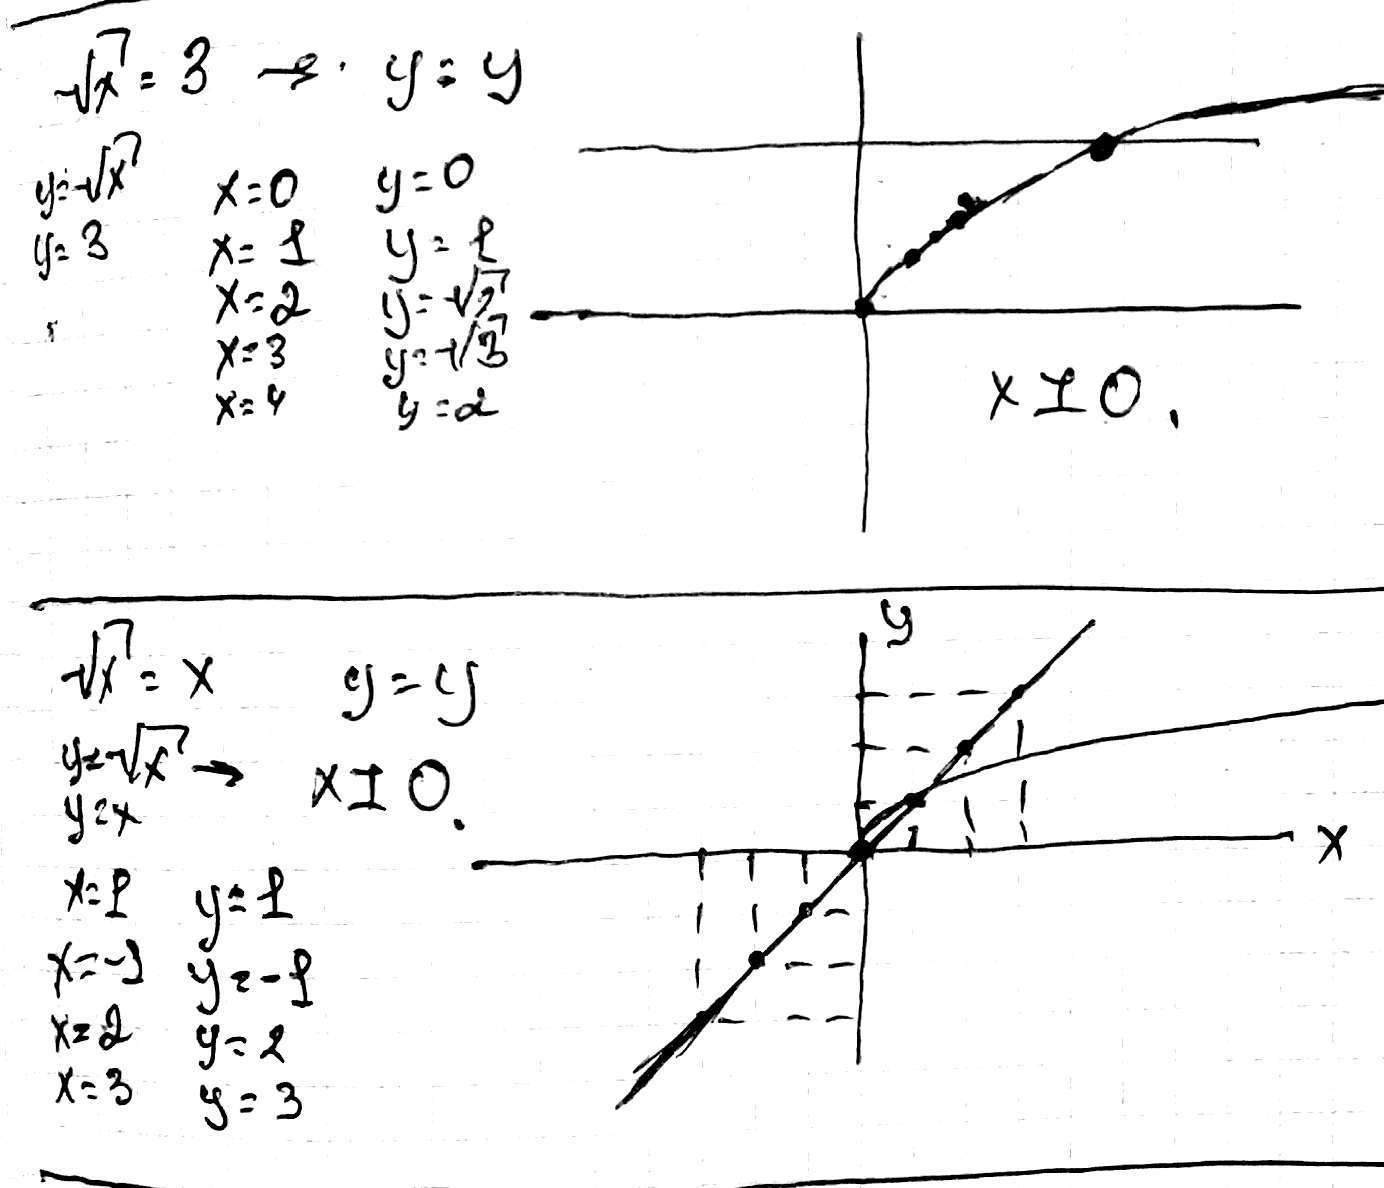 √x = 3 → y = y
y=√x x=0 y=0
y=3 x=1 y=1
x=2 y=√2
x=3 y=√3
x=4 y=2
x ⊥ 0.
y
√x = x y = y
y=√x → x ⊥ 0.
y=x
x
x=1 y=1
x=-1 y=-1
x=2 y=2
x=3 y=3